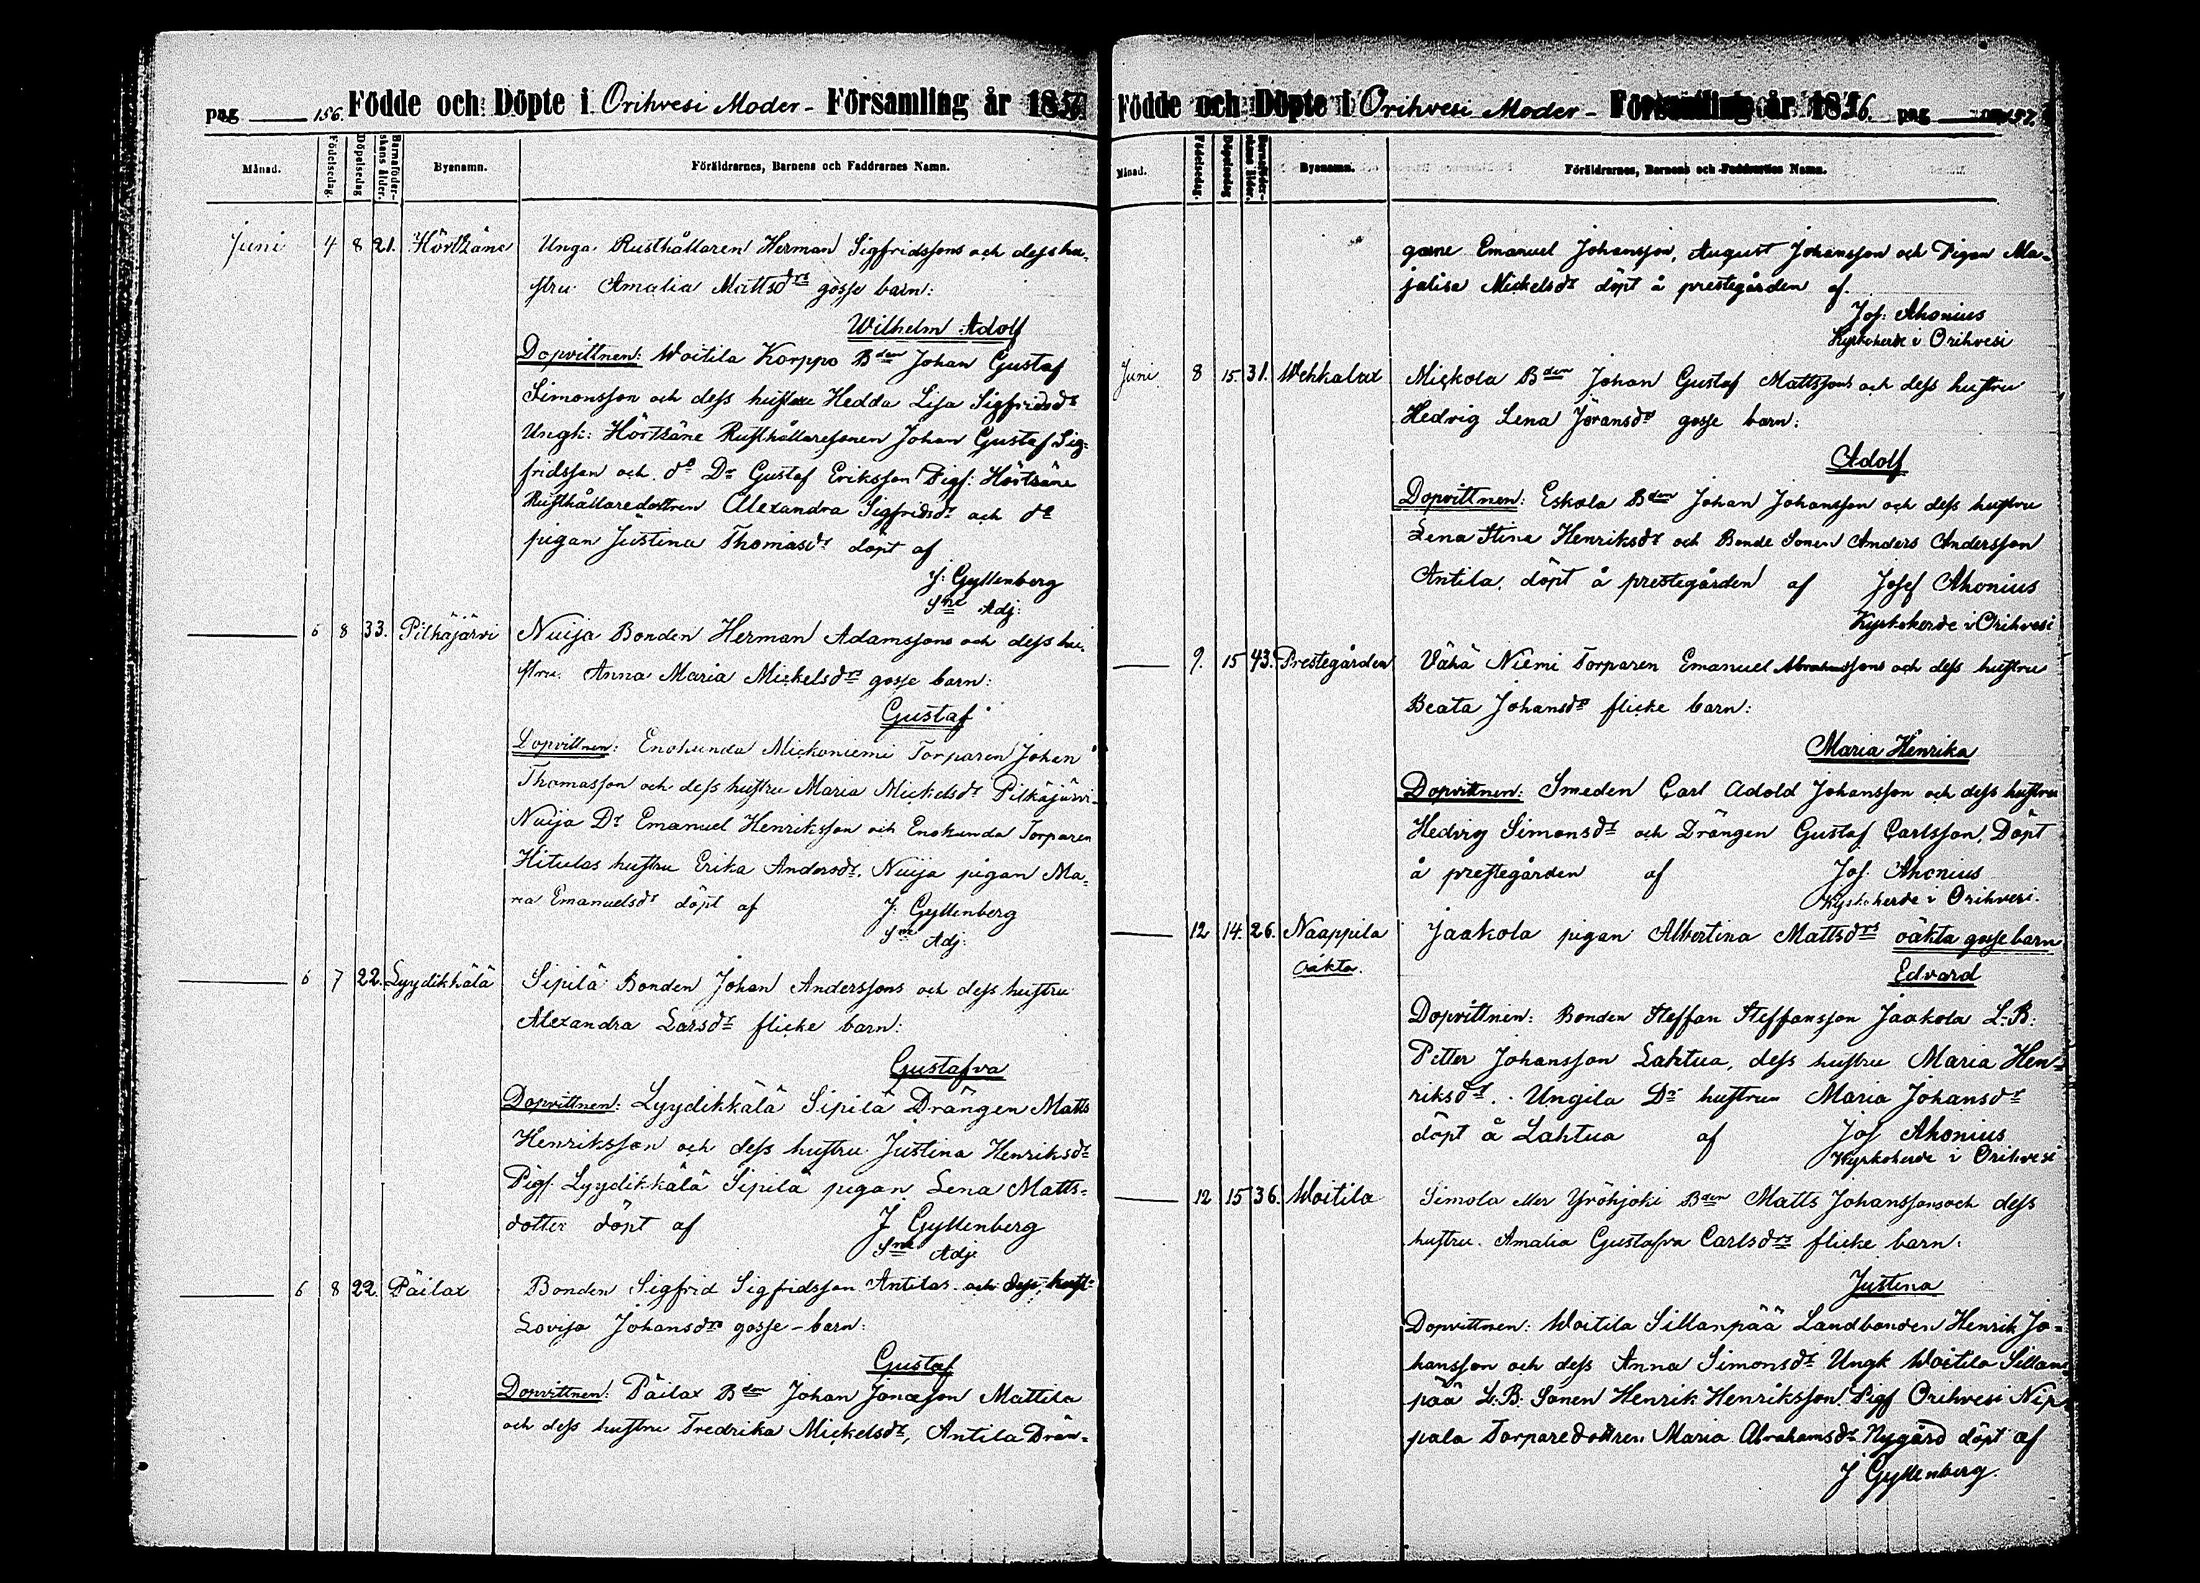 pag 156. Födde och Döpte i Orihvesi Moder- Församling år 185
Månad. Födelsedag. Döpelsedag Barnaföder-skans ålder. Bysnamn. Föräldrarnes, Barnens och Faddrarnes Namn.
Juni 4 8 21. Hörtsäne Unga Rusthållaren Herman Sigfridssons och dess hu-
stru Amalia Mattsdrs gosse barn:
Wilhelm Adolf
Dopvittnen: Woitila Korppo Bden Johan Gustaf
Simonsson och dess hustru Hedda Lisa Sigfridsdr
Ungk: Hörtsäne Rusthållaresonen Johan Gustaf Sig-
fridsson och do Dr Gustaf Eriksson Pigf: Hörtsäne
Rusthållaredottren Alexandra Sigfridsdr och do
pigan Justina Thomasdr döpt af
J: Gyllenberg
Sne Adj:
6 8 33. Pitkäjärvi Nuija Bonden Herman Adamssons och dess hu-
stru Anna Maria Mickelsdrs gosse barn:
Gustaf
Dopvittnen: Enokunda Mickoniemi Torparen Johan
Thomasson och dess hustru Maria Mickelsdr Pitkäjärvi
Nuija Dr Emanuel Henriksson och Enokunda Torparen
Hitulas hustru Erika Andersdr. Nuija pigan Ma-
ria Emanuelsdr döpt af J: Gyllenberg
Sne Adj:
6 7 22. Lyydikkälä Sipilä Bonden Johan Anderssons och dess hustru
Alexandra Larsdr flicke barn:
Gustafva
Dopvittnen: Lyydikkälä Sipilä Drängen Matts
Henriksson och dess hustru Justina Henriksdr
Pigf. Lyydikkälä Sipilä pigan Lena Matts-
dotter döpt af J Gyllenberg
Sne Adj.
6 8 22. Päilax Bonden Sigfrid Sigfridsson Antilas och dess hust-
Lovisa Johansdrs gosse-barn:
Gustaf
Dopvittnen: Päilax Bden Johan Jonasson Mattila
och dess hustru Fredrika Mickelsdr, Antila Drän-
Födde och Döpte i Orihvesi Moder- Församling år 1856. pag 157.
Månad. Födelsedag. Döpelsedag Barnaföder-skans ålder. Bysnamn. Föräldrarnes, Barnens och Faddrarnes Namn.
garne Emanuel Johansson, August Johansson och Pigan Ma-
jalisa Mickelsdr döpt å prestegården af.
Jos: Ahonius
Kyrkoherde i Orihvesi
Juni 8 15. 31. Wehkalax Mickola Bden Johan Gustaf Mattssons och dess hustru
Hedvig Lena Jöransdrs gosse barn:
Adolf
Dopvittnen: Eskola Bden Johan Johansson och dess hustru
Lena Stina Henriksdr och Bonde Sonen Anders Andersson
Antila, döpt å prestegården af Josef Ahonius
Kyrkoherde i Orihvesi
9. 15 43. Prestegården Vähä Niemi Torparen Emanuel Abrahamssons och dess hustru
Beata Johansdrs flicke barn:
Maria Henrika
Dopvittnen: Smeden Carl Adold Johansson och dess hustru
Hedvig Simonsdr och Drängen Gustaf Carlsson, Döpt
å prestegården af Jos. Ahonius
Kyrkoherde i Orihvesi.
12 14. 26. Naappila Jaakola pigan Albertina Mattsdrs oäkta gosse barn
Oäkta.
Edvard
Dopvittnen: Bonden Steffan Steffansson Jaakola L.B:
Petter Johansson Lahtua, dess hustru Maria Hen-
riksdr. Ungila Dr hustrun Maria Johansdr
döpt å Lahtua af Jos Ahonius
Kyrkoherde i Orihvesi
12 15 36. Woitila Simola eller Yröhjoki Bden Matts Johanssons och dess
hustru Amalia Gustafva Carlsdrs flicke barn:
Justina
Dopvittnen: Woitila Sillanpää Landbonden Henrik Jo-
hansson och dess Anna Simonsdr Ungk Woitila Sillan-
pää L.B. Sonen Henrik Henriksson Pigf Orihvesi Nip-
pala Torparedottren Maria Abrahamsdr Nygård döpt af
J Gyllenberg.